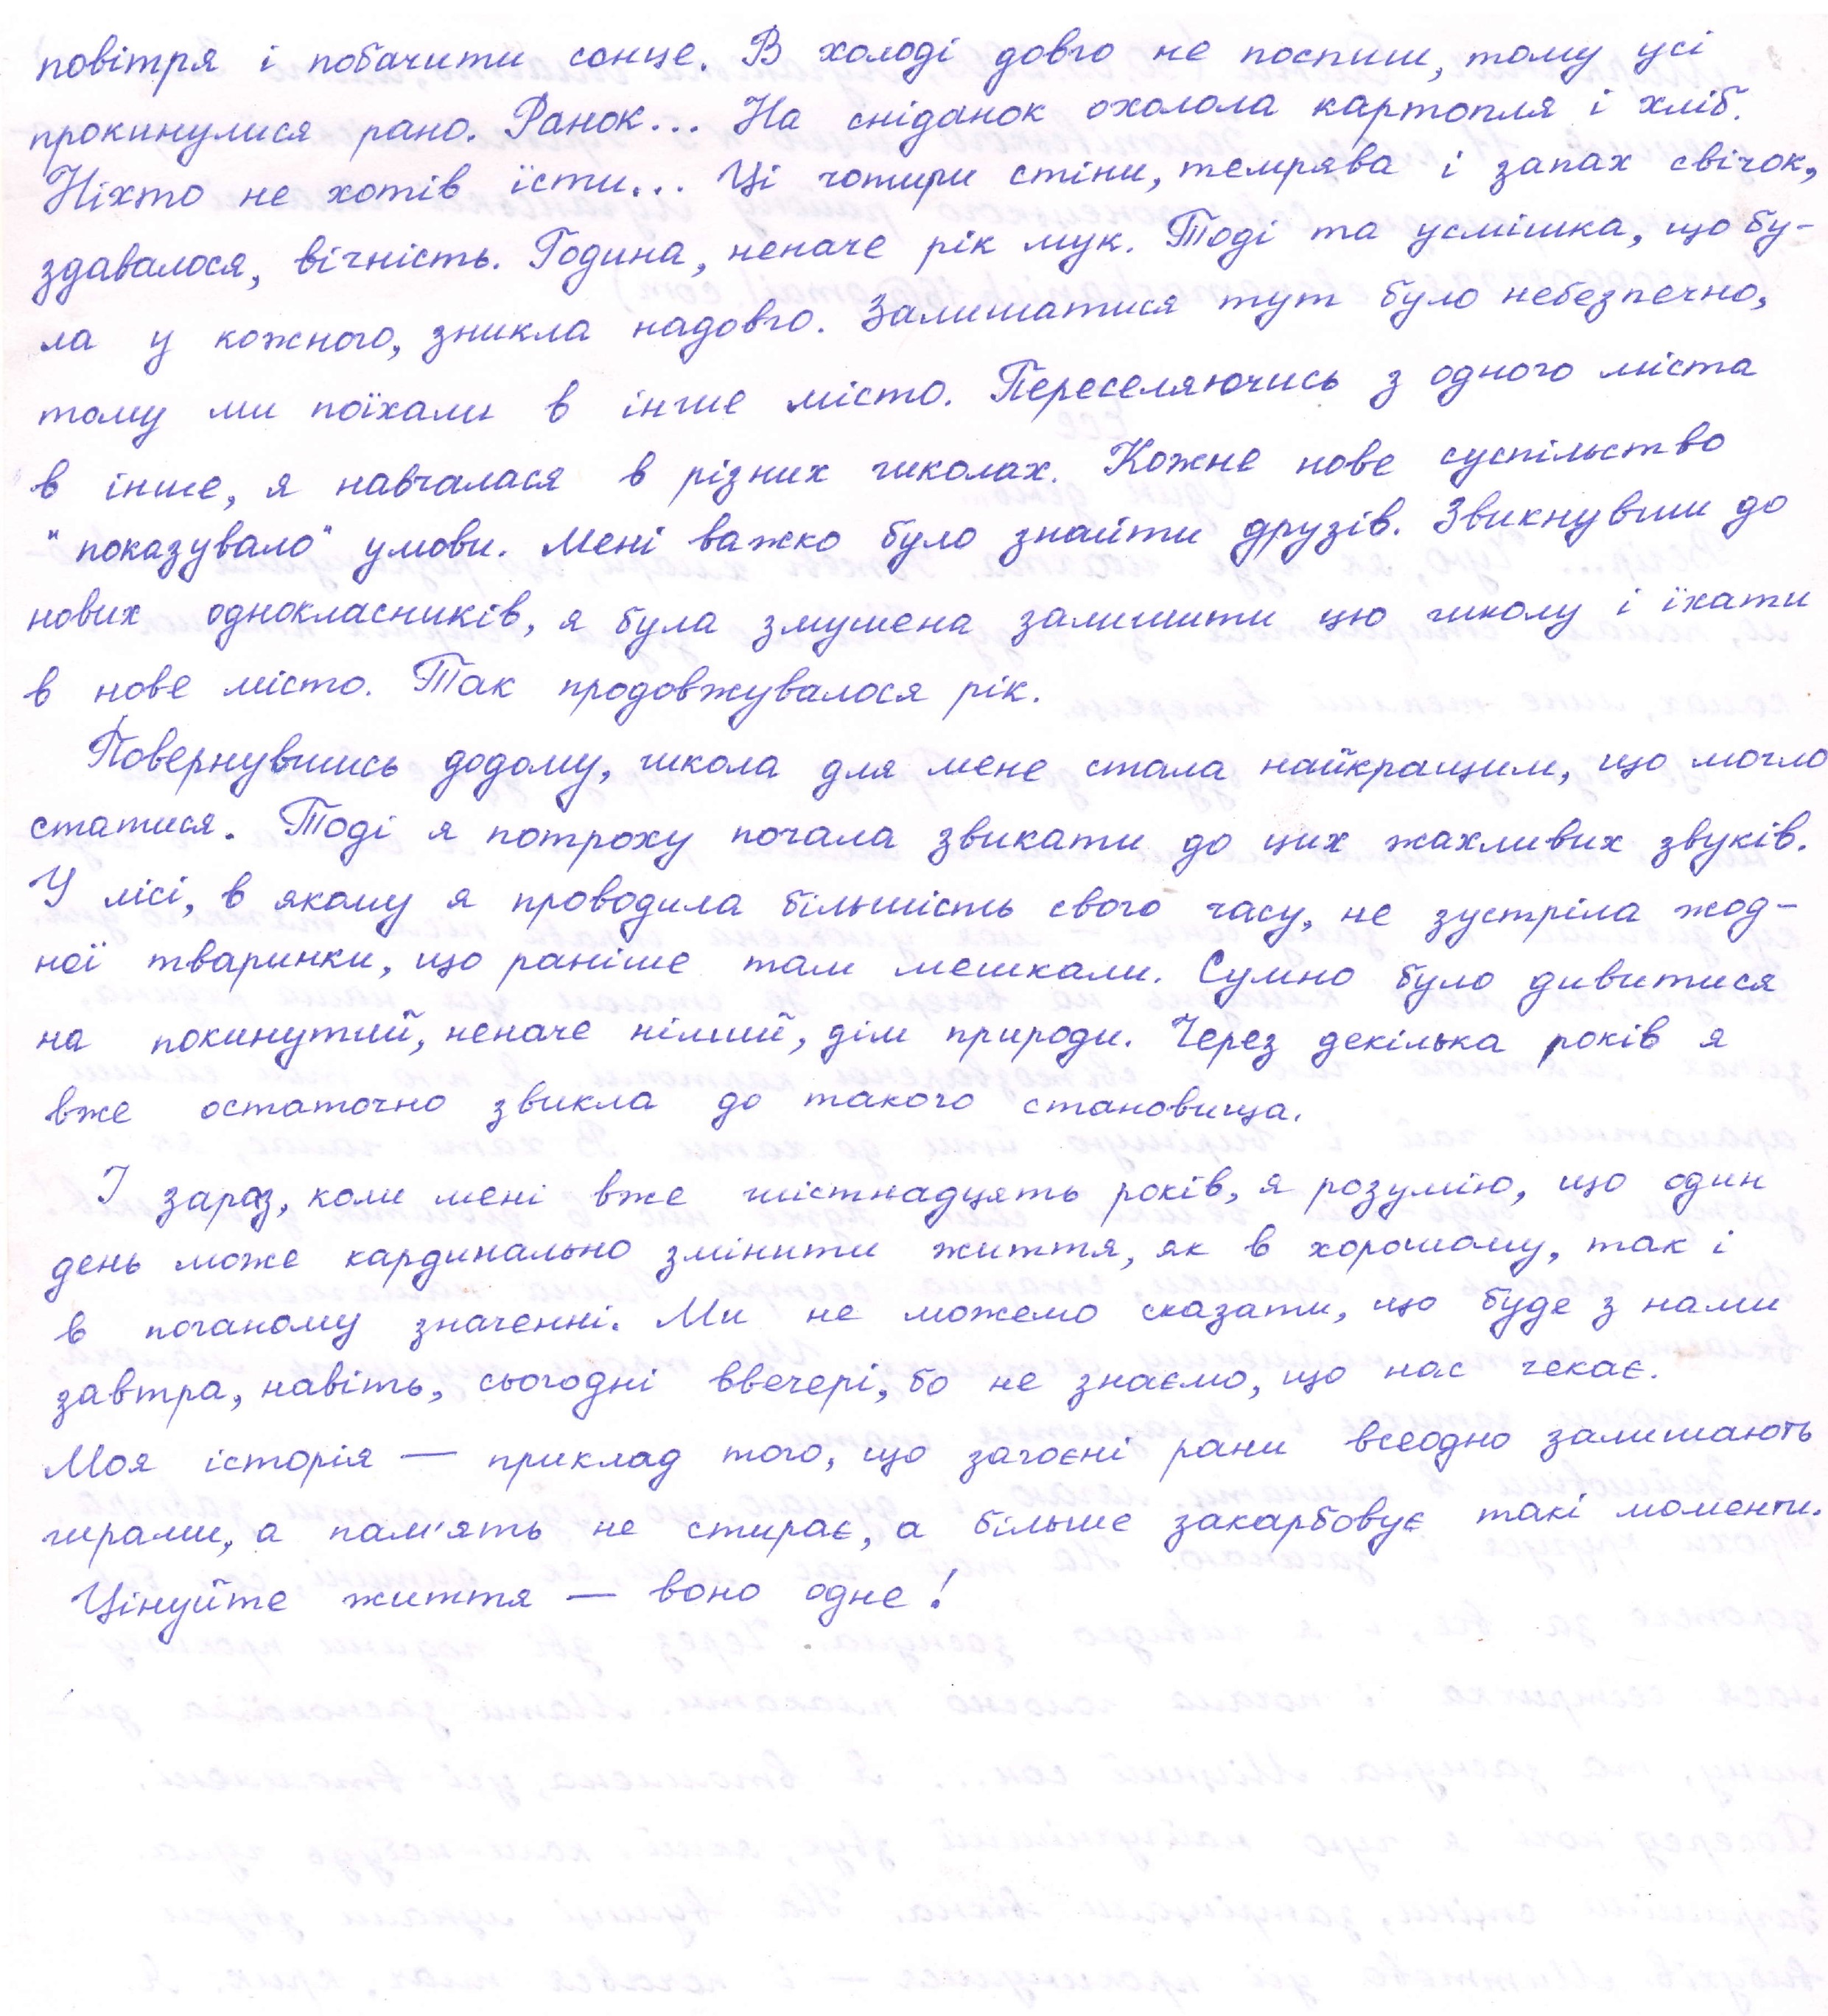 повітря і побачити сонце. В холоді довго не поспиш, тому усі
прокинулися рано. Ранок... На сніданок охолола картопля і хліб.
Ніхто не хотів їсти... Ці чотири стіни, темрява і запах свічок,
здавалося, вічність. Година, неначе рік мук. Тоді та усмішка, що бу-
ла у кожного, зникла надовго. Залишатися тут було небезпечно,
тому ми поїхали в інше місто. Переселяючись з одного міста
в інше, я навчалася в різних школах. Кожне нове суспільство
"показувало" умови. Мені важко було знайти друзів. Звикнувши до
нових однокласників, я була змушена залишити цю школу і їхати
в нове місто. Так продовжувалося рік.
Повернувшись додому, школа для мене стала найкращим, що могло
статися. Тоді я потроху почала звикати до цих жахливих звуків.
У лісі, в якому я проводила більшість свого часу, не зустріла жод-
ної тваринки, що раніше там мешкали. Сумно було дивитися
на покинутий, неначе німий, дім природи. Через декілька років я
вже остаточно звикла до такого становища.
І зараз, коли мені вже шістнадцять років, я розумію, що один
день може кардинально змінити життя, як в хорошому, так і
в поганому значенні. Ми не можемо сказати, що буде з нами
завтра, навіть, сьогодні ввечері, бо не знаємо, що нас чекає.
Моя історія — приклад того, що загоєні рани всеодно залишають
шрами, а пам'ять не стирає, а більше закарбовує такі моменти.
Цінуйте життя — воно одне!